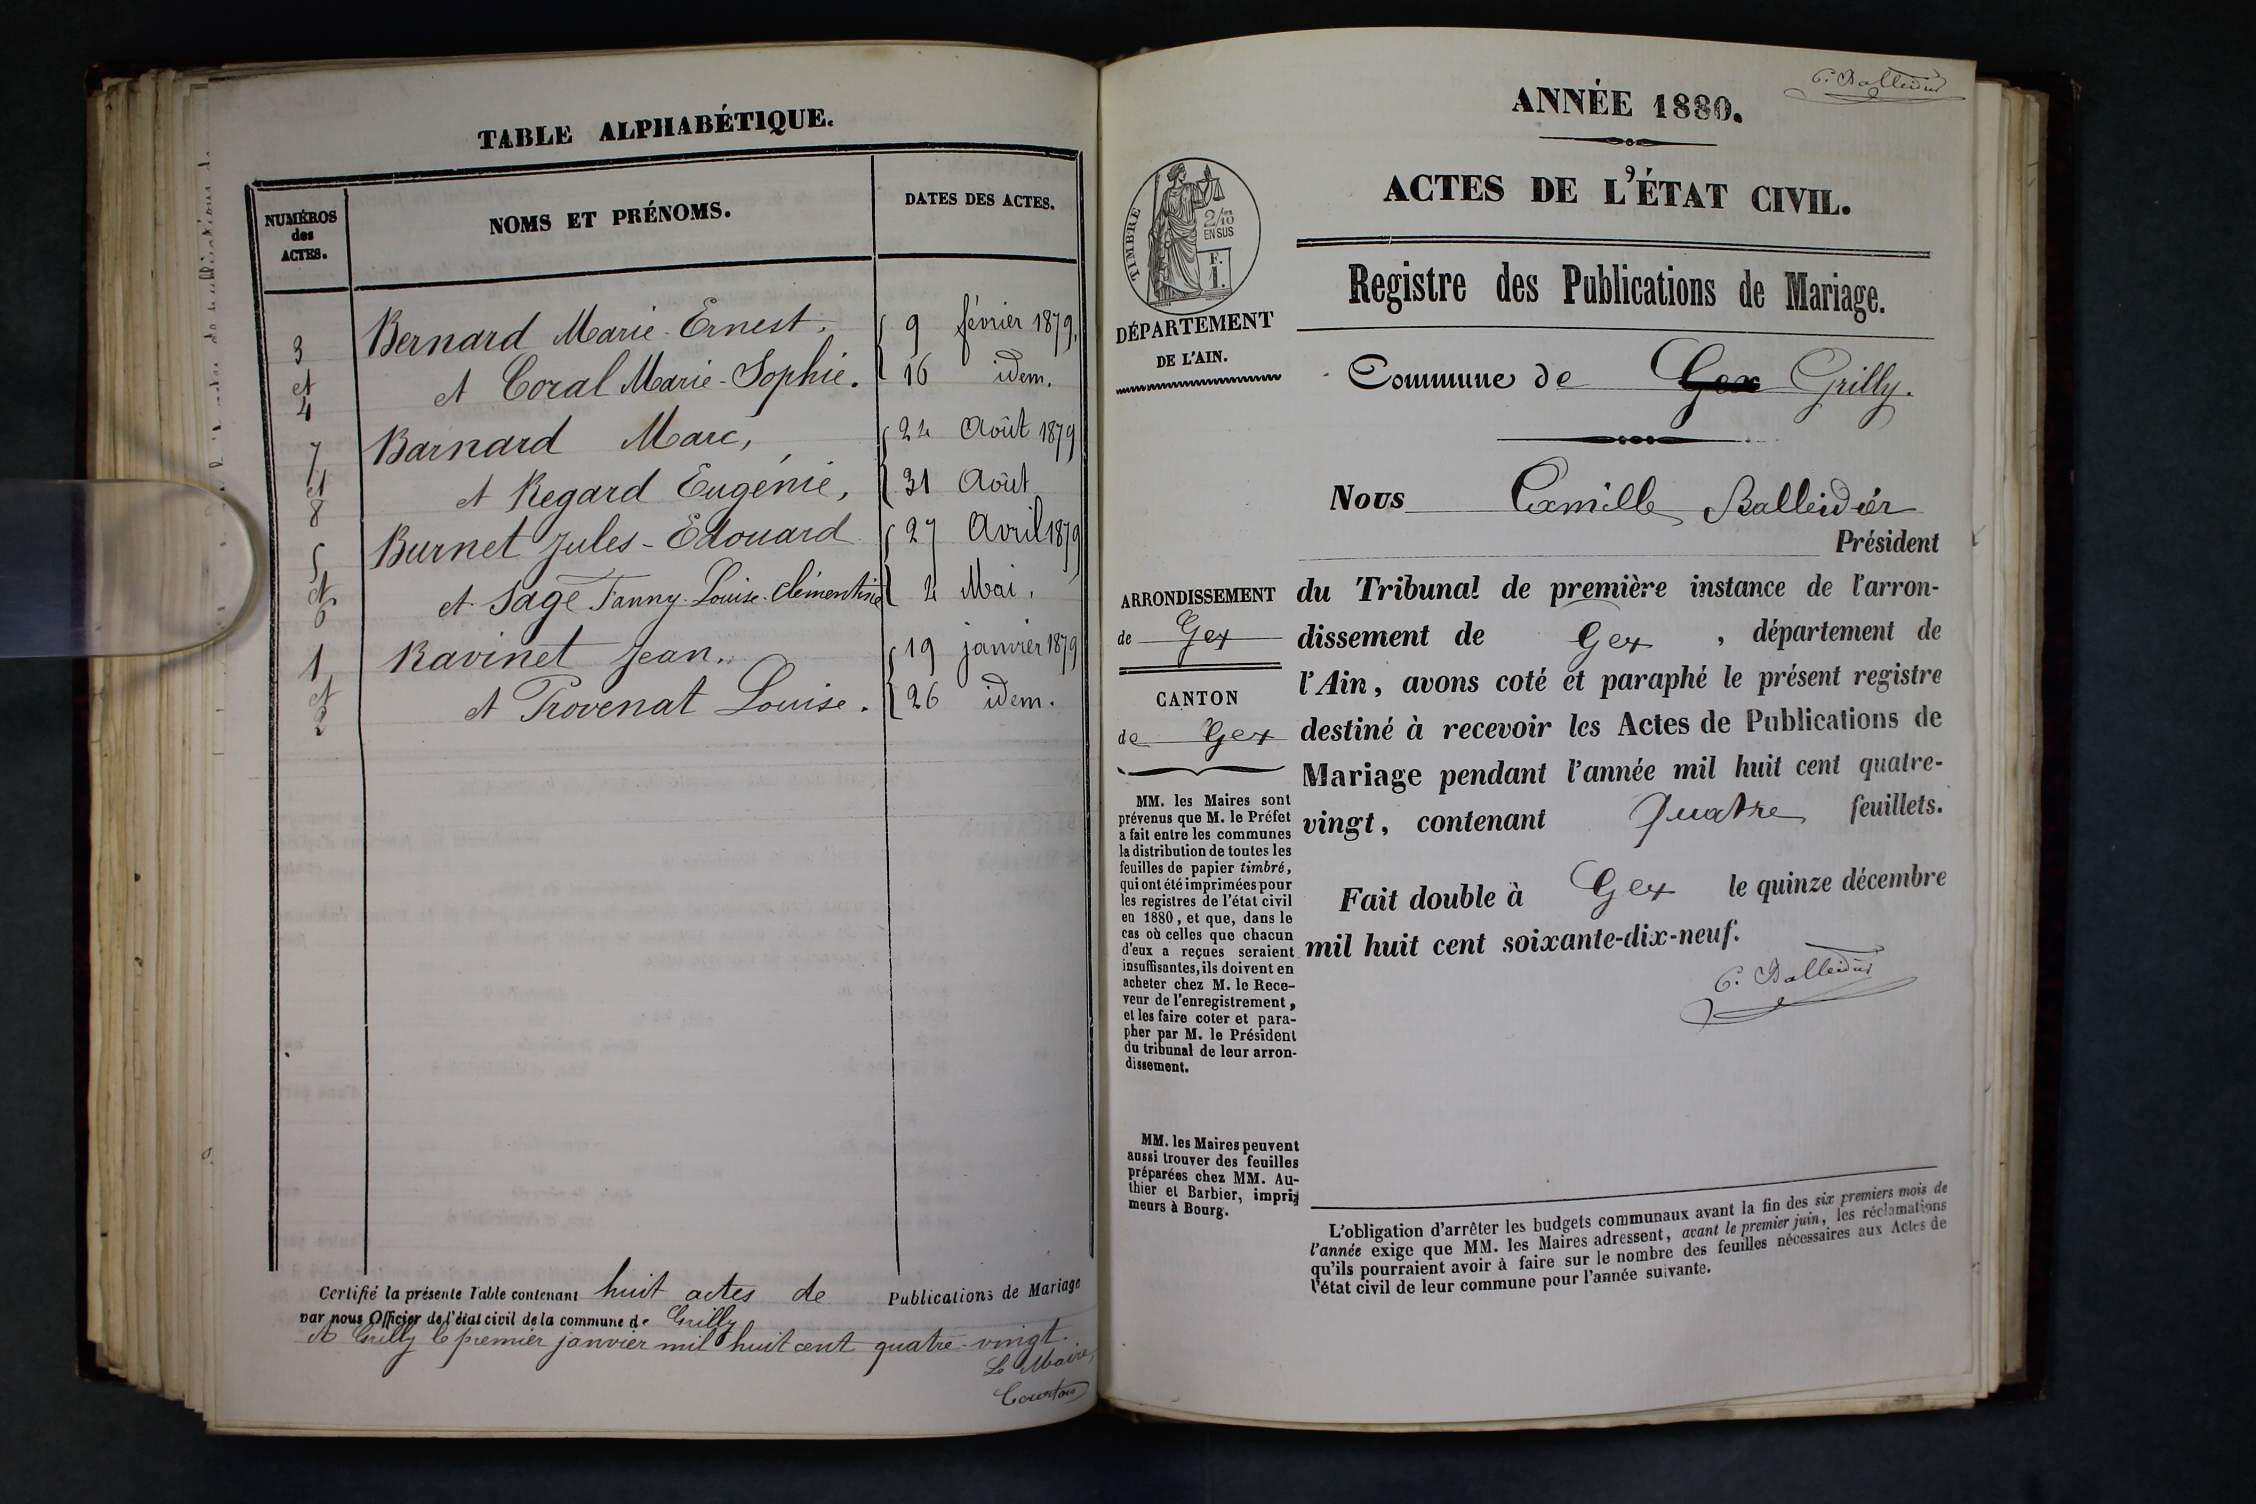 TABLE ALPHABÉTIQUE.
NUMÉROS
des
ACTES.
NOMS ET PRÉNOMS.
DATES DES ACTES.
3 Bernard Marie-Ernest. 9 février 1879.
et
4 et Coral Marie-Sophie. 16 idem.
7 Barnard Marc, 24 Août 1879
et
8 et Regard Eugénie, 31 Août
5 Burnet Jules-Edouard 27 Avril 1879
et
6 et Sage Fanny-Louise-Clémentine 4 Mai.
1 Ravinet Jean. 19 janvier 1879
et
2 et Provenat Louise. 26 idem.
Certifié la présente Table contenant huit actes de Publications de Mariage
par nous Officier de l'état civil de la commune de Grilly
A Grilly le premier janvier mil huit cent quatre-vingt.
Le Maire,
C. Balleidier
ANNÉE 1880.
ACTES DE L'ÉTAT CIVIL.
TIMBRE
2/10
EN SUS
F.
1.
DÉPARTEMENT
DE L'AIN.
Registre des Publications de Mariage.
Commune de Gex Grilly.
Nous Camille Balleidier
Président
du Tribunal de première instance de l'arron-
dissement de Gex, département de
l'Ain, avons coté et paraphé le présent registre
destiné à recevoir les Actes de Publications de
Mariage pendant l'année mil huit cent quatre-
vingt, contenant quatre feuillets.
Fait double à Gex le quinze décembre
mil huit cent soixante-dix-neuf.
C. Balleidier
ARRONDISSEMENT
de Gex
CANTON
de Gex
MM. les Maires sont
prévenus que M. le Préfet
a fait entre les communes
la distribution de toutes les
feuilles de papier timbré,
qui ont été imprimées pour
les registres de l'état civil
en 1880, et que, dans le
cas où celles que chacun
d'eux a reçues seraient
insuffisantes, ils doivent en
acheter chez M. le Rece-
veur de l'enregistrement,
et les faire coter et para-
pher par M. le Président
du tribunal de leur arron-
dissement.
MM. les Maires peuvent
aussi trouver des feuilles
préparées chez MM. Au-
thier et Barbier, impri-
meurs à Bourg.
L'obligation d'arrêter les budgets communaux avant la fin des six premiers mois de
l'année exige que MM. les Maires adressent, avant le premier juin, les réclamations
qu'ils pourraient avoir à faire sur le nombre des feuilles nécessaires aux Actes de
l'état civil de leur commune pour l'année suivante.